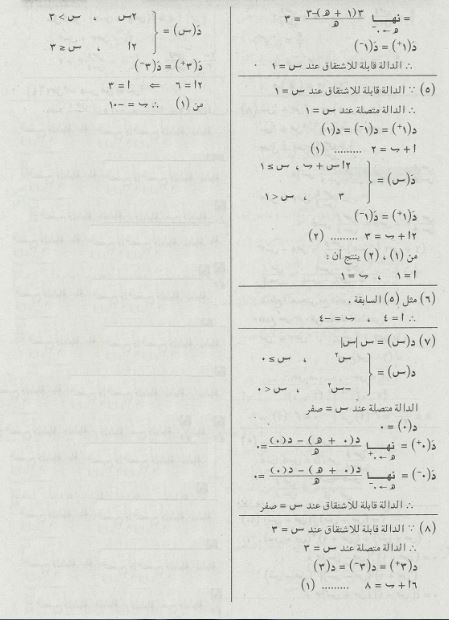 = نهــا هـ←٠⁻ (٣(١ + هـ) − ٣)/هـ = ٣
دَ(١⁺) = دَ(١⁻)
∴ الدالة قابلة للاشتقاق عند س = ١
(٥) ∵ الدالة قابلة للاشتقاق عند س = ١
∴ الدالة متصلة عند س = ١
د(١⁺) = د(١⁻) = د(١)
ا + ب = ٢ ......... (١)
دَ(س) = {
٢ا س + ب ، س ≥ ١
٣ ، س < ١
دَ(١⁺) = دَ(١⁻)
٢ا + ب = ٣ ......... (٢)
من (١) ، (٢) ينتج أن :
ا = ١ ، ب = ١
(٦) مثل (٥) السابقة .
∴ ا = ٤ ، ب = −٤
(٧) د(س) = س |س|
د(س) = {
س٢ ، س ≤ ٠
−س٢ ، س < ٠
الدالة متصلة عند س = صفر
د(٠) = ٠
دَ(٠⁺) = نهــا هـ←٠⁺ (د(٠ + هـ) − د(٠))/هـ = ٠
دَ(٠⁻) = نهــا هـ←٠⁻ (د(٠ + هـ) − د(٠))/هـ = ٠
∴ الدالة قابلة للاشتقاق عند س = صفر
(٨) ∵ الدالة قابلة للاشتقاق عند س = ٣
∴ الدالة متصلة عند س = ٣
د(٣⁺) = د(٣⁻) = د(٣)
٦ا + ب = ٨ ......... (١)
دَ(س) = {
٢س ، س > ٣
٢ا ، س ≤ ٣
دَ(٣⁺) = دَ(٣⁻)
٢ا = ٦ ⇐ ا = ٣
من (١) ∴ ب = −١٠